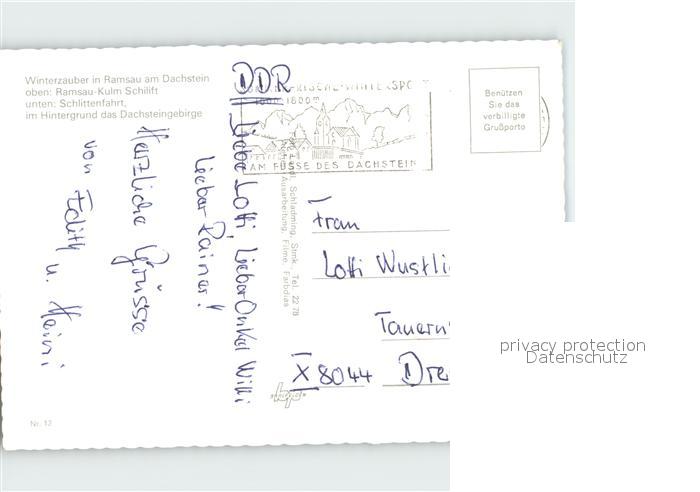 Winterzauber in Ramsau am Dachstein
oben: Ramsau-Kulm Schilift
unten: Schlittenfahrt,
im Hintergrund das Dachsteingebirge
DDR
Liebe Lotti, Lieber Onkel Willi
Lieber Rainer!
Herzliche Grüsse
von Edith u. Heini
WINTERSPO
1000-1800m
AM FUSSE DES DACHSTEIN
Schladming, Stmk., Tel. 22 78
Ausarbeitung, Filme, Farbdias
Benützen
Sie das
verbilligte
Grußporto
Frau
Lotti Wustli
Tauern
X 8044 Dre
Nr. 12
privacy protection
Datenschutz